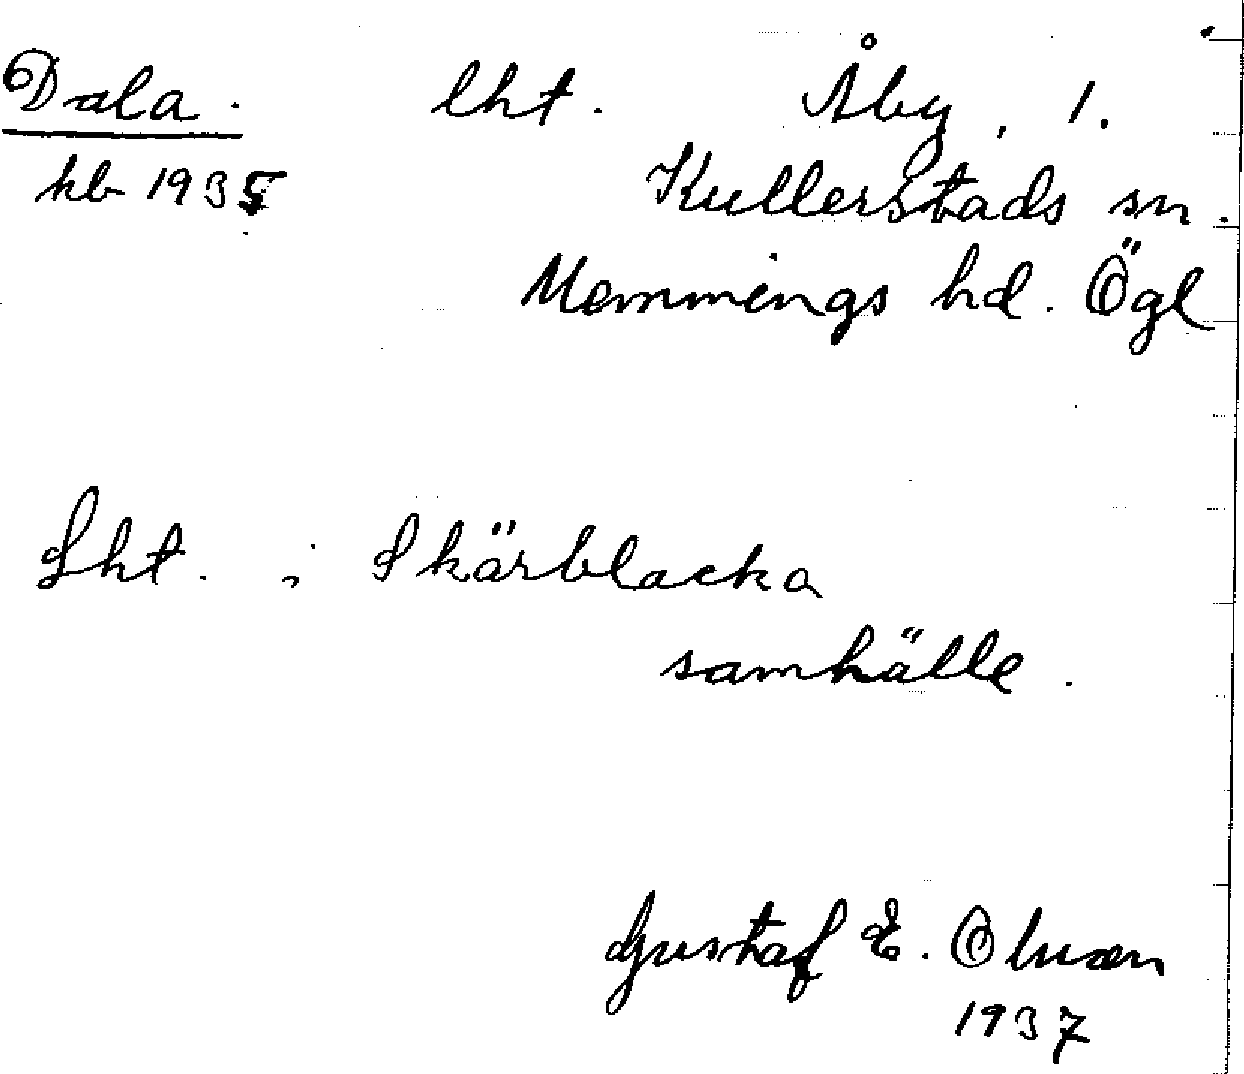 Dala. lht. Åby, 1.
kb 1935 Kullerstads sn.
Memmings hd. Ögl
Lht. i Skärblacka
samhälle.
Gustaf E. Olsson
1937